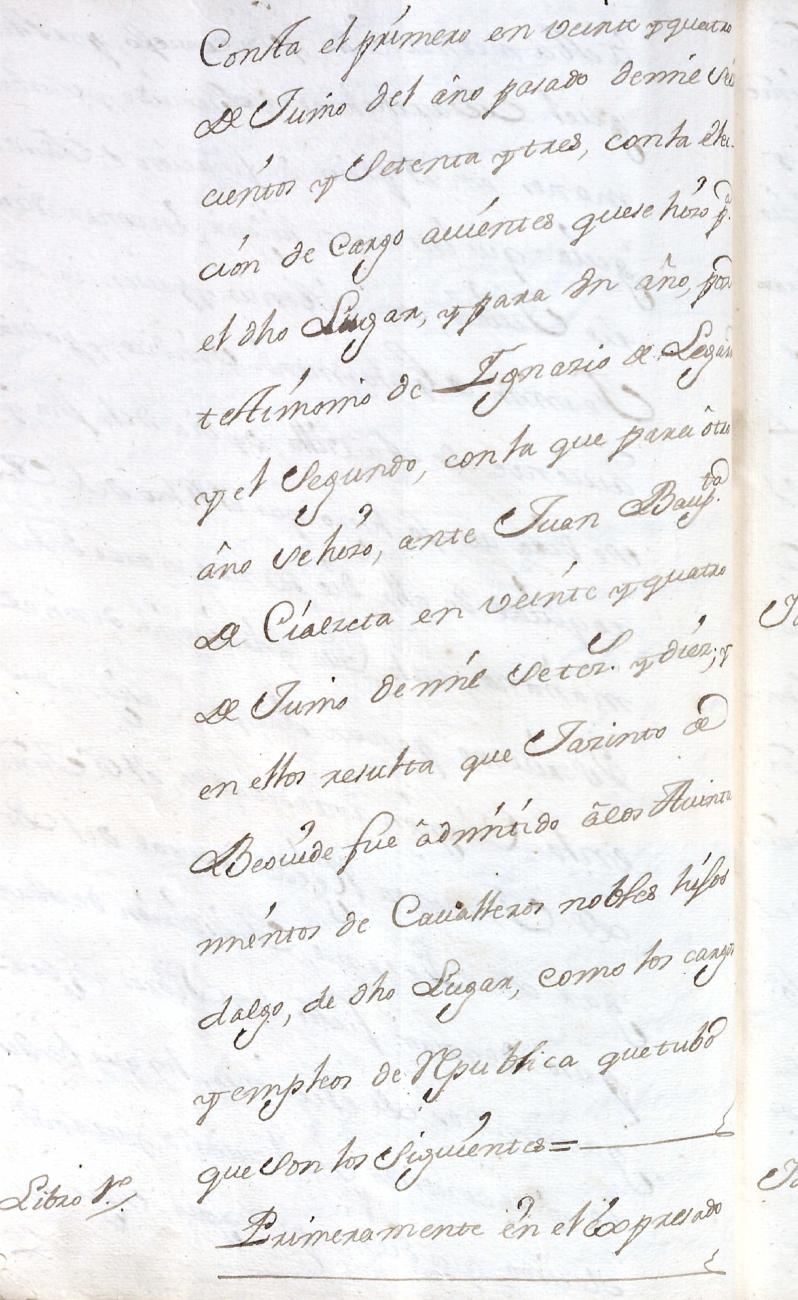 Consta el primero en veinte y quatro
de Junio del año pasado de mil seis
cientos y setenta y tres, consta elec-
ción de Cargo auientes, que se hizo p.ª
el dho Lugar, y para un año, por
testimonio de Ygnazio de Legar
y el Segundo, consta que para otro
año se hizo, ante Juan Baup.ta
de Cialzeta en veinte y quatro
de Junio de mil setez.s y diez; y
en ellos resulta que Jazinto de
Beouide fue âdmitido âlos Aiunta
mientos de Cavalleros nobles hijos
dalgo, de dho Lugar, como los cargos
y empleos de Republica que tubo
que son los siguientes =
Libro 1º
Primeramente en el expresado